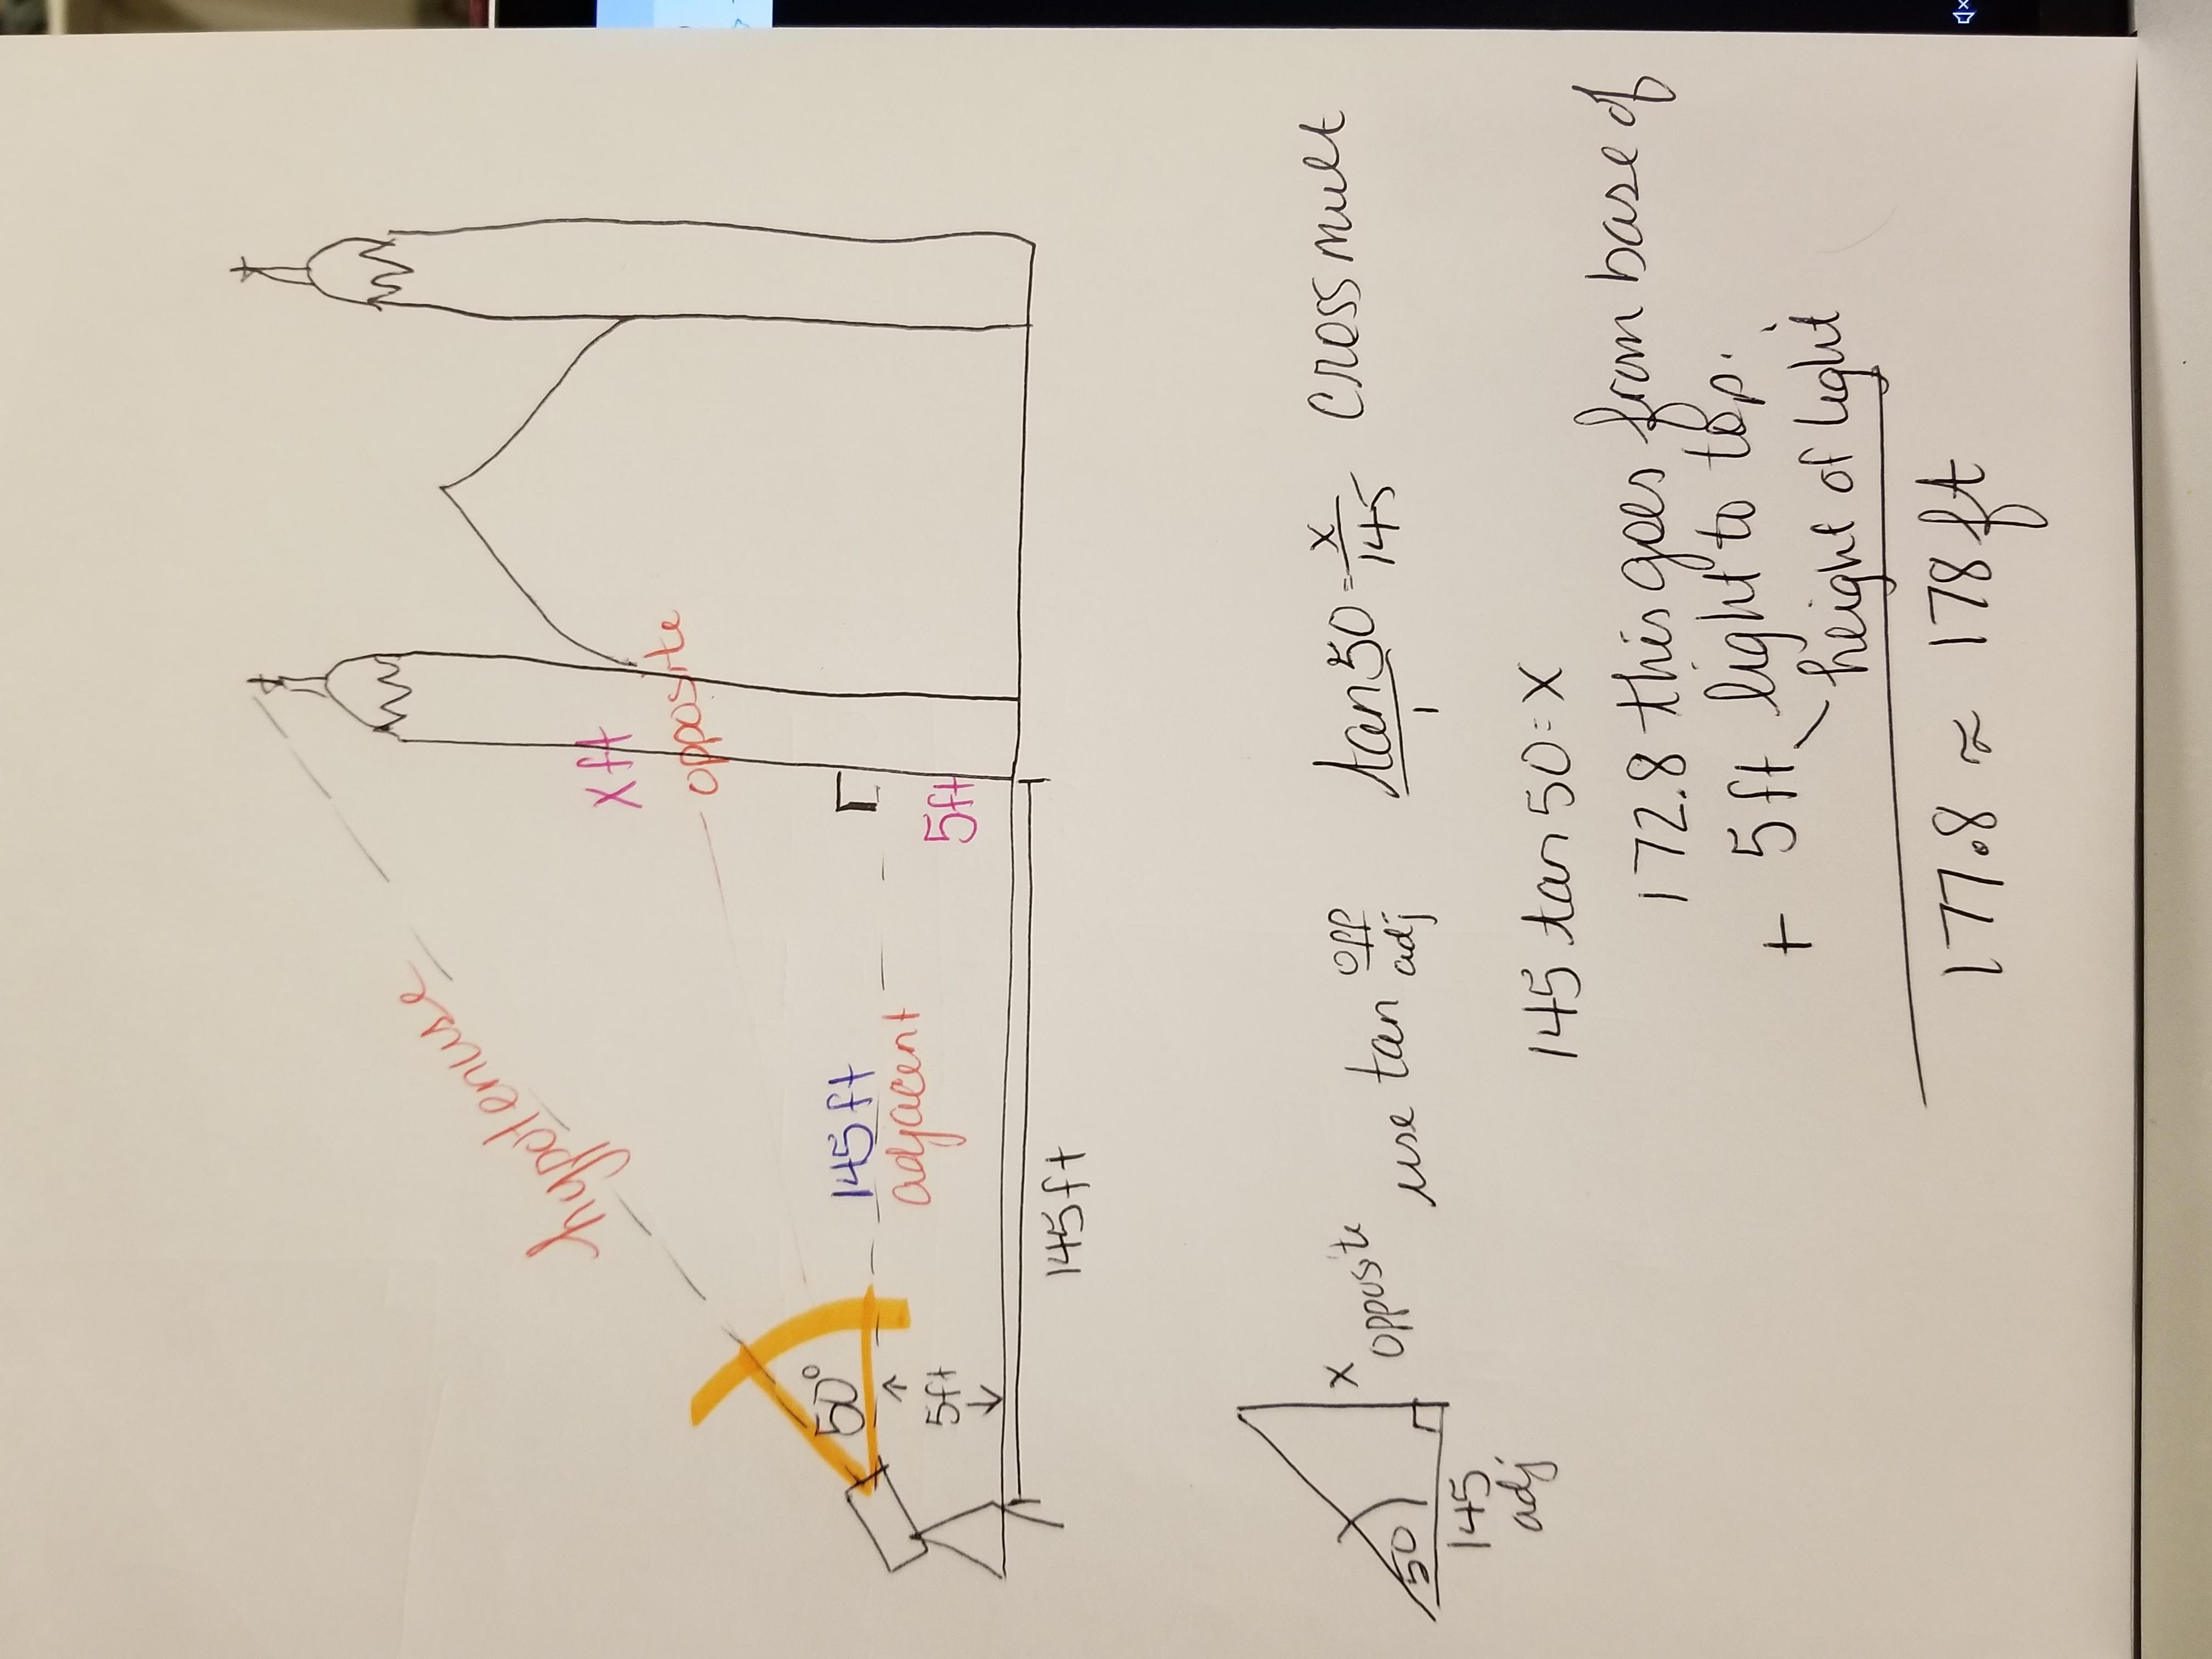 hypotenuse
x ft
opposite
145 ft
adjacent
50°
5ft
5ft
145 ft
50
x
opposite
145
adj
use tan opp
adj
tan 50 = x cross mult
1 145
145 tan 50 = x
172.8 this goes from base of
+ 5 ft light to top.
height of light
177.8 ≈ 178 ft